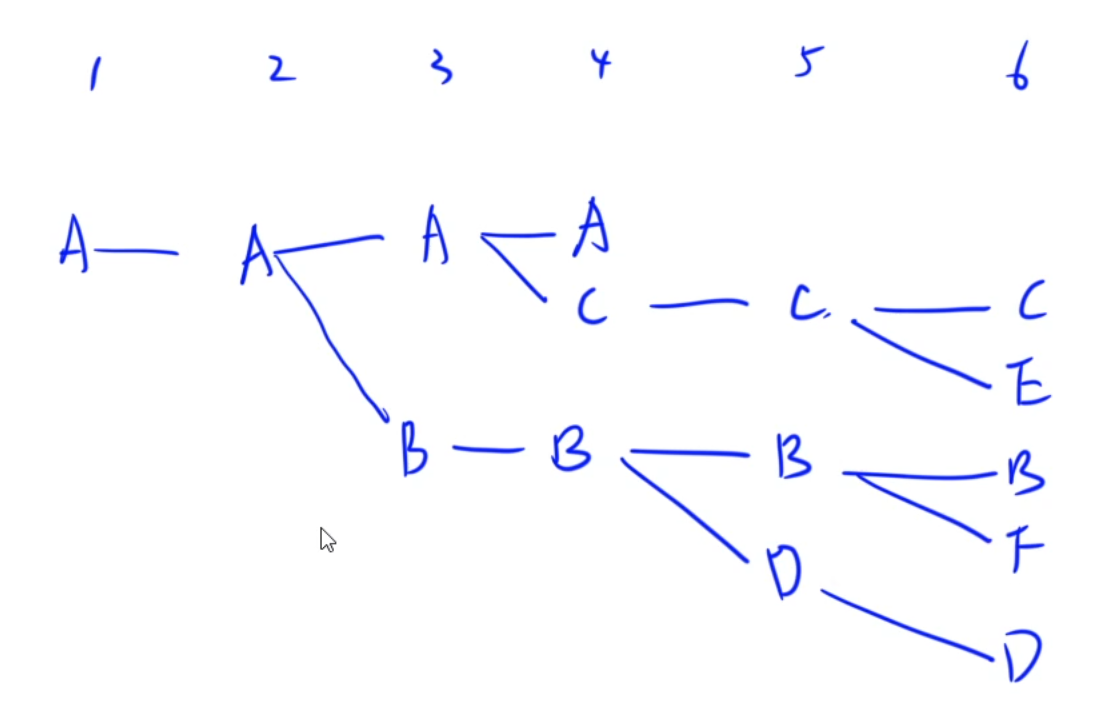 1 2 3 4 5 6
A A A A
C C C
E
B B B B
F
D
D